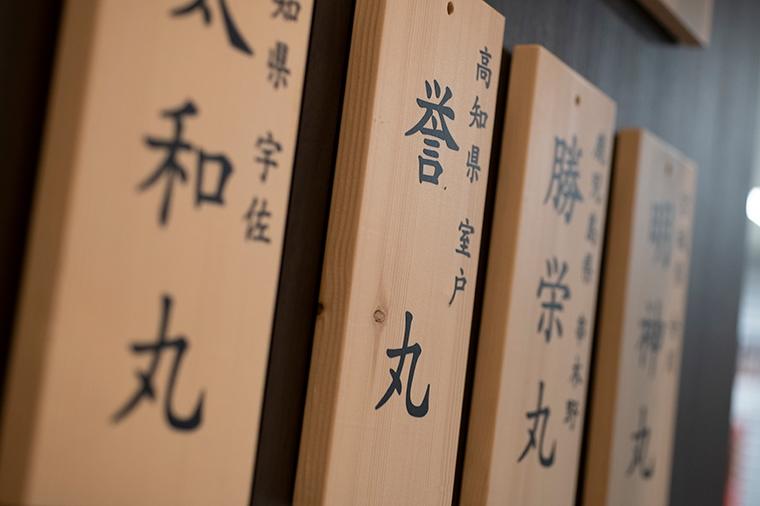 知県 宇佐
和丸
高知県 室戸
誉丸
鹿児島県 串木野
勝栄丸
明神丸